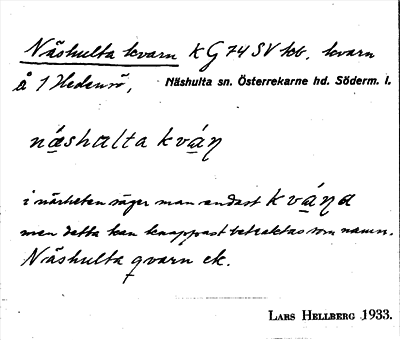 Näshulta kvarn k G 74 SV kb. kvarn
å 1 Hedensö, Näshulta sn. Österrekarne hd. Söderm. l.
næshalta kváɳ
i närheten säger man endast kváɳa
men detta kan knappast betraktas som namn.
Näshulta qvarn ek.
LARS HELLBERG 1933.